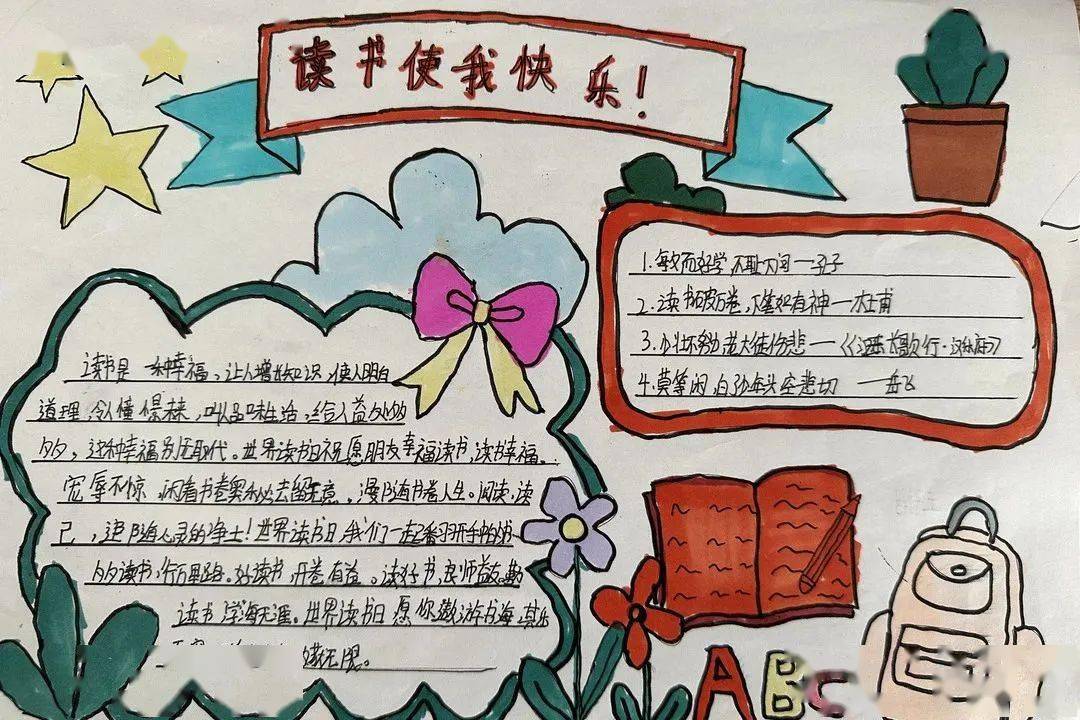 读书使我快乐！
1.敏而好学,不耻下问一孔子
2.读书破万卷,下笔如有神一杜甫
3.少壮不努力老大徒伤悲一《汉乐府·
4.莫等闲 白 少年头空悲切 一岳飞
读书是一种幸福，让人增长知识，使人明白
道理，令人懂得，叫人品味生活，给人益
，这种幸福别无取代。世界读书日祝愿朋友幸福读书,读书幸福。
宠辱不惊，闲看书卷，去留无意，漫随书卷人生。阅读，读
己，追随心灵的净土！世界读书日,我们一起翻开手中的书
读书，行万里路。好读书，开卷有益。读好书，良师益友。勤
读书，学海无涯。世界读书日 愿你遨游书海，其乐
无限。
ABC